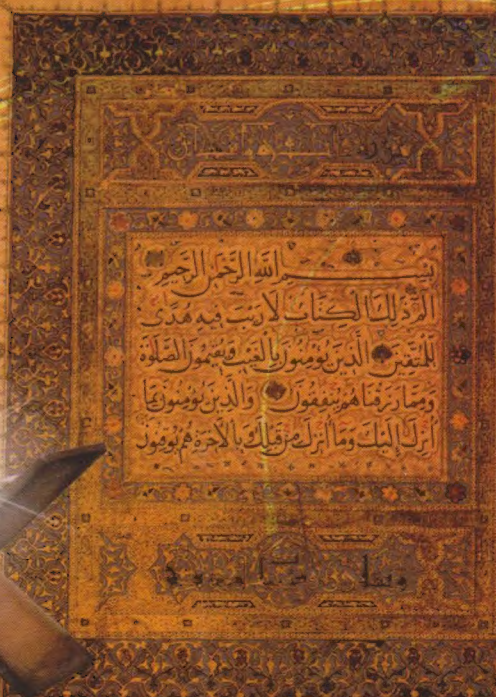 بِسْمِ اللَّهِ الرَّحْمَنِ الرَّحِيمِ
الم ذَلِكَ الْكِتَابُ لَا رَيْبَ فِيهِ هُدًى
لِلْمُتَّقِينَ الَّذِينَ يُؤْمِنُونَ بِالْغَيْبِ وَيُقِيمُونَ الصَّلَوةَ
وَمِمَّا رَزَقْنَاهُمْ يُنْفِقُونَ وَالَّذِينَ يُؤْمِنُونَ بِمَا
أُنْزِلَ إِلَيْكَ وَمَا أُنْزِلَ مِنْ قَبْلِكَ بِالْآخِرَةِ هُمْ يُوقِنُونَ